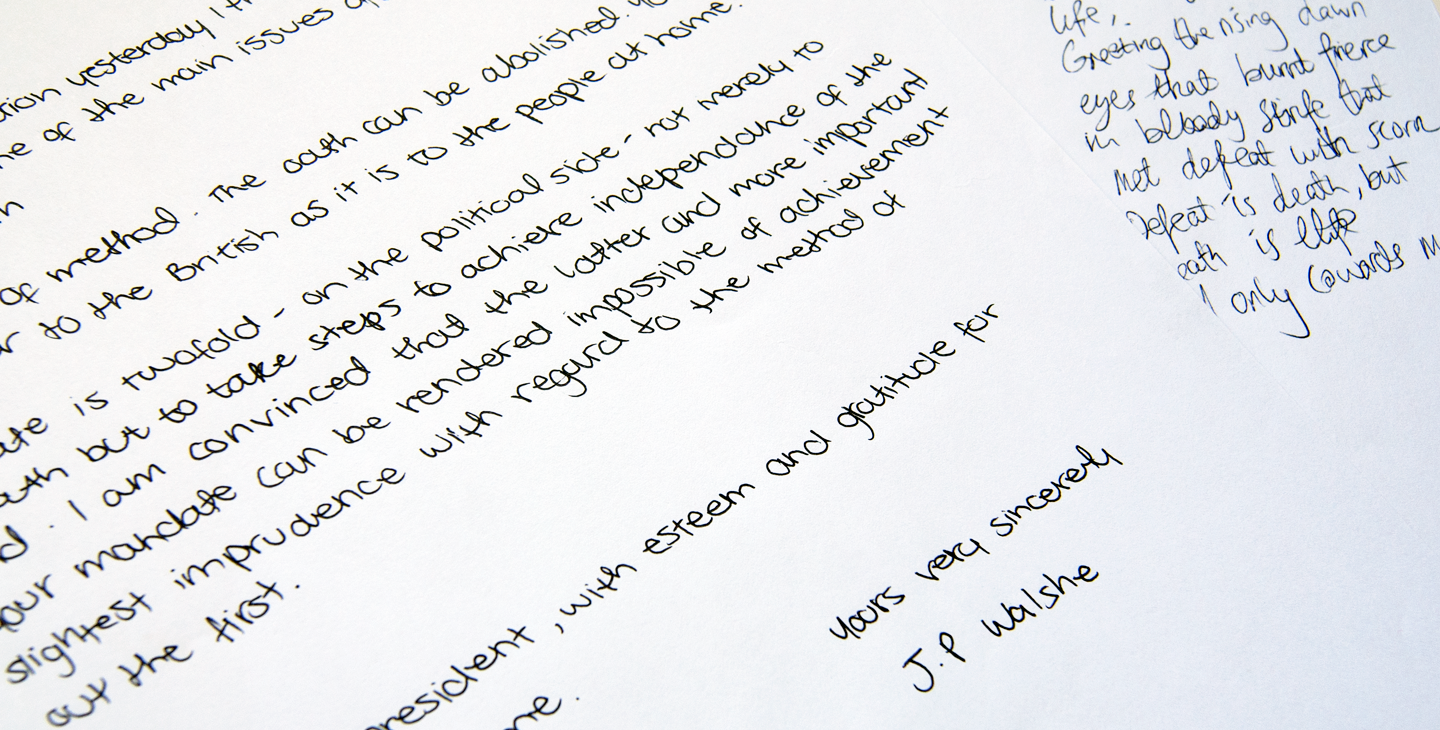 yesterday
of the main issues
of method. The oath can be abolished.
to the British as it is to the people at home.
is twofold - on the political side - not merely to
but to take steps to achieve independance of the
. I am convinced that the latter and more important
mandate can be rendered impossible of achievement
slightest imprudence with regard to the method of
out the first.
, with esteem and gratitude for
Yours very sincerely
J.P Walshe
life,.
Greeting the rising dawn
eyes that burnt fierce
in bloody strife that
met defeat with scorn
Defeat is death, but
is life
only cowards